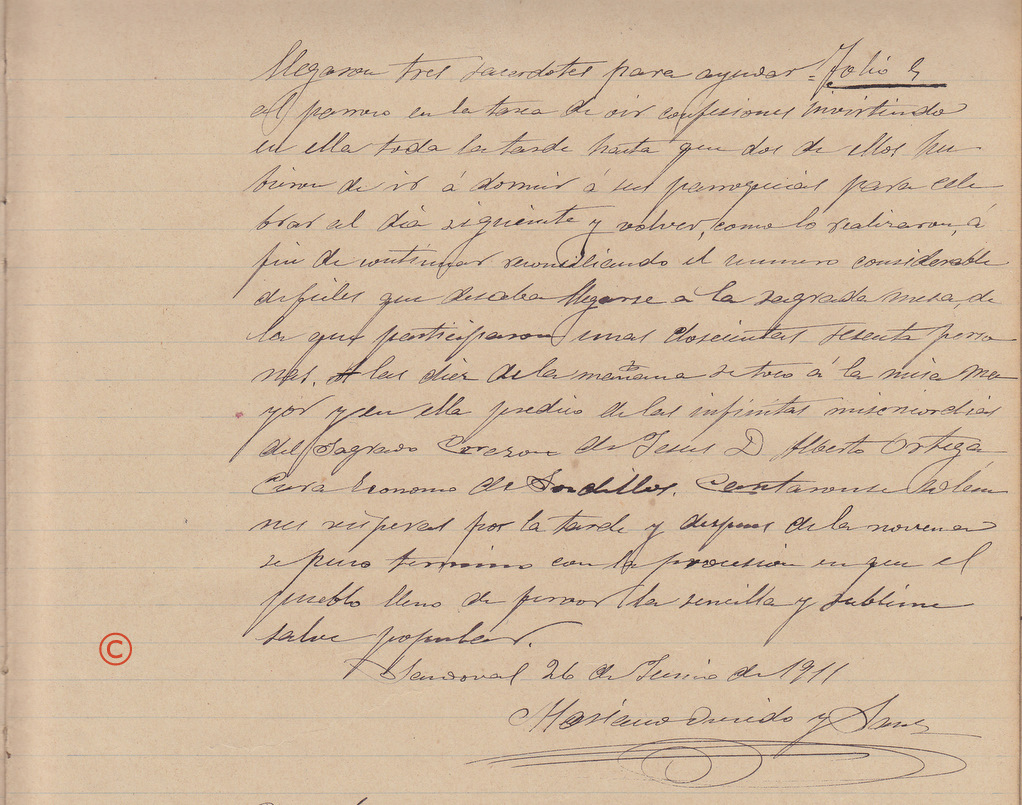 llegaron tres sacerdotes para ayudar = Folio 2
al parroco en la tarea de oir confesiones invirtiendo
en ella toda la tarde hasta que dos de ellos hu-
bieron de ir á dormir á sus parroquias para cele
brar al dia siguiente y volver, como lo realizaron, á
fin de continuar reconciliando el numero considerable
de fieles que deseaba llegarse a la sagrada mesa, de
la que participaron unas doscientas sesenta perso
nas. A las diez de la mañana se toco á la misa ma-
yor y en ella predico de las infinitas misericordias
del Sagrado Corazon de Jesus D Alberto Ortega
Cura Economo de Sordillos. Cantaronse solem
nes visperas por la tarde y despues de la novena
se puso termino con la procesion en que el
pueblo lleno de fervor la sencilla y sublime
salve popular.
Sandoval 26 de Junio de 1911
Mariano y Sanz
©